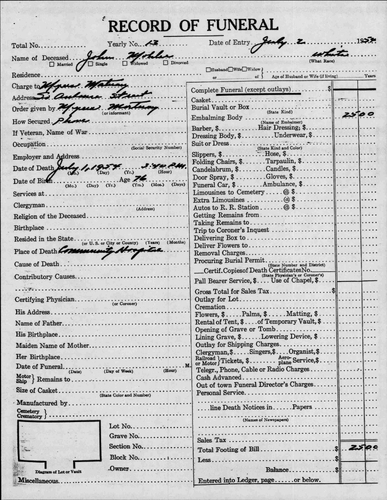 RECORD OF FUNERAL
Total No. Yearly No. 13 Date of Entry July 2 1954
Name of Deceased John Mohler white
Married Single Widowed Divorced (What Race)
Residence Husband Wife Widow
Age of Husband or Wife (if living) Years
Charge to Myers
Address Street
Order given by Myers
(or informant)
How Secured Phone
If Veteran, Name of War
Occupation
(Social Security Number)
Employer and Address
Date of Death July 1, 1954 3:40 P.M.
(Mo.) (Day) (Yr.)
Date of Birth Age 76
(Mo.) (Day) (Yr.) (Yrs.) (Mo.) (Days)
Services at
Clergyman
(Address)
Religion of the Deceased
Birthplace
Resided in the State
(or U. S. or City or County) (Years) (Months)
Place of Death Community Hospital
Cause of Death
Contributory Causes
Certifying Physician
(or Coroner)
His Address
Name of Father
His Birthplace
Maiden Name of Mother
Her Birthplace
Date of Funeral M.
(Date) (Day of Week) (Hour)
Motor Ship Remains to
Size of Casket
(State Color and Number)
Manufactured by
Cemetery
Crematory
Lot No.
Grave No.
Section No.
Block No.
Owner
Diagram of Lot or Vault
Miscellaneous
Complete Funeral (except outlays) $
Casket
Burial Vault or Box
(State Kind)
Embalming Body 25 00
Barber, $ Hair Dressing, $
Dressing Body, $ Underwear, $
Suit or Dress
(State Kind and Color)
Slippers, $ Hose, $
Folding Chairs, $ Tarpaulin, $
Candelabrum, $ Candles, $
Door Spray, $ Gloves, $
Funeral Car, $ Ambulance, $
Limousines to Cemetery @ $
Extra Limousines @ $
Autos to R. R. Station @ $
Getting Remains from
Taking Remains to
Trip to Coroner's Inquest
Delivering Box to
Deliver Flowers to
Removal Charges
Procuring Burial Permit
Certif. Copies of Death Certificates No.
(State Physician's or Coroner's)
Pall Bearer Service, $ Use of Chapel, $
Gross Total for Sales Tax $
Outlay for Lot
Cremation
Flowers, $ Palms, $ Matting, $
Rental of Tent, $ of Temporary Vault, $
Opening of Grave or Tomb
Lining Grave, $ Lowering Device, $
Outlay for Shipping Charges
Clergyman, $ Singers, $ Organist, $
Railroad Motor Tickets, $ Aero-plane Service, $
Telegr., Phone, Cable or Radio Charges
Cash Advanced
Out of town Funeral Director's Charges
Personal Service
line Death Notices in Papers
(Names of Newspapers)
Sales Tax
Total Footing of Bill $ 25 00
Less
Balance $
Entered into Ledger, page or below.